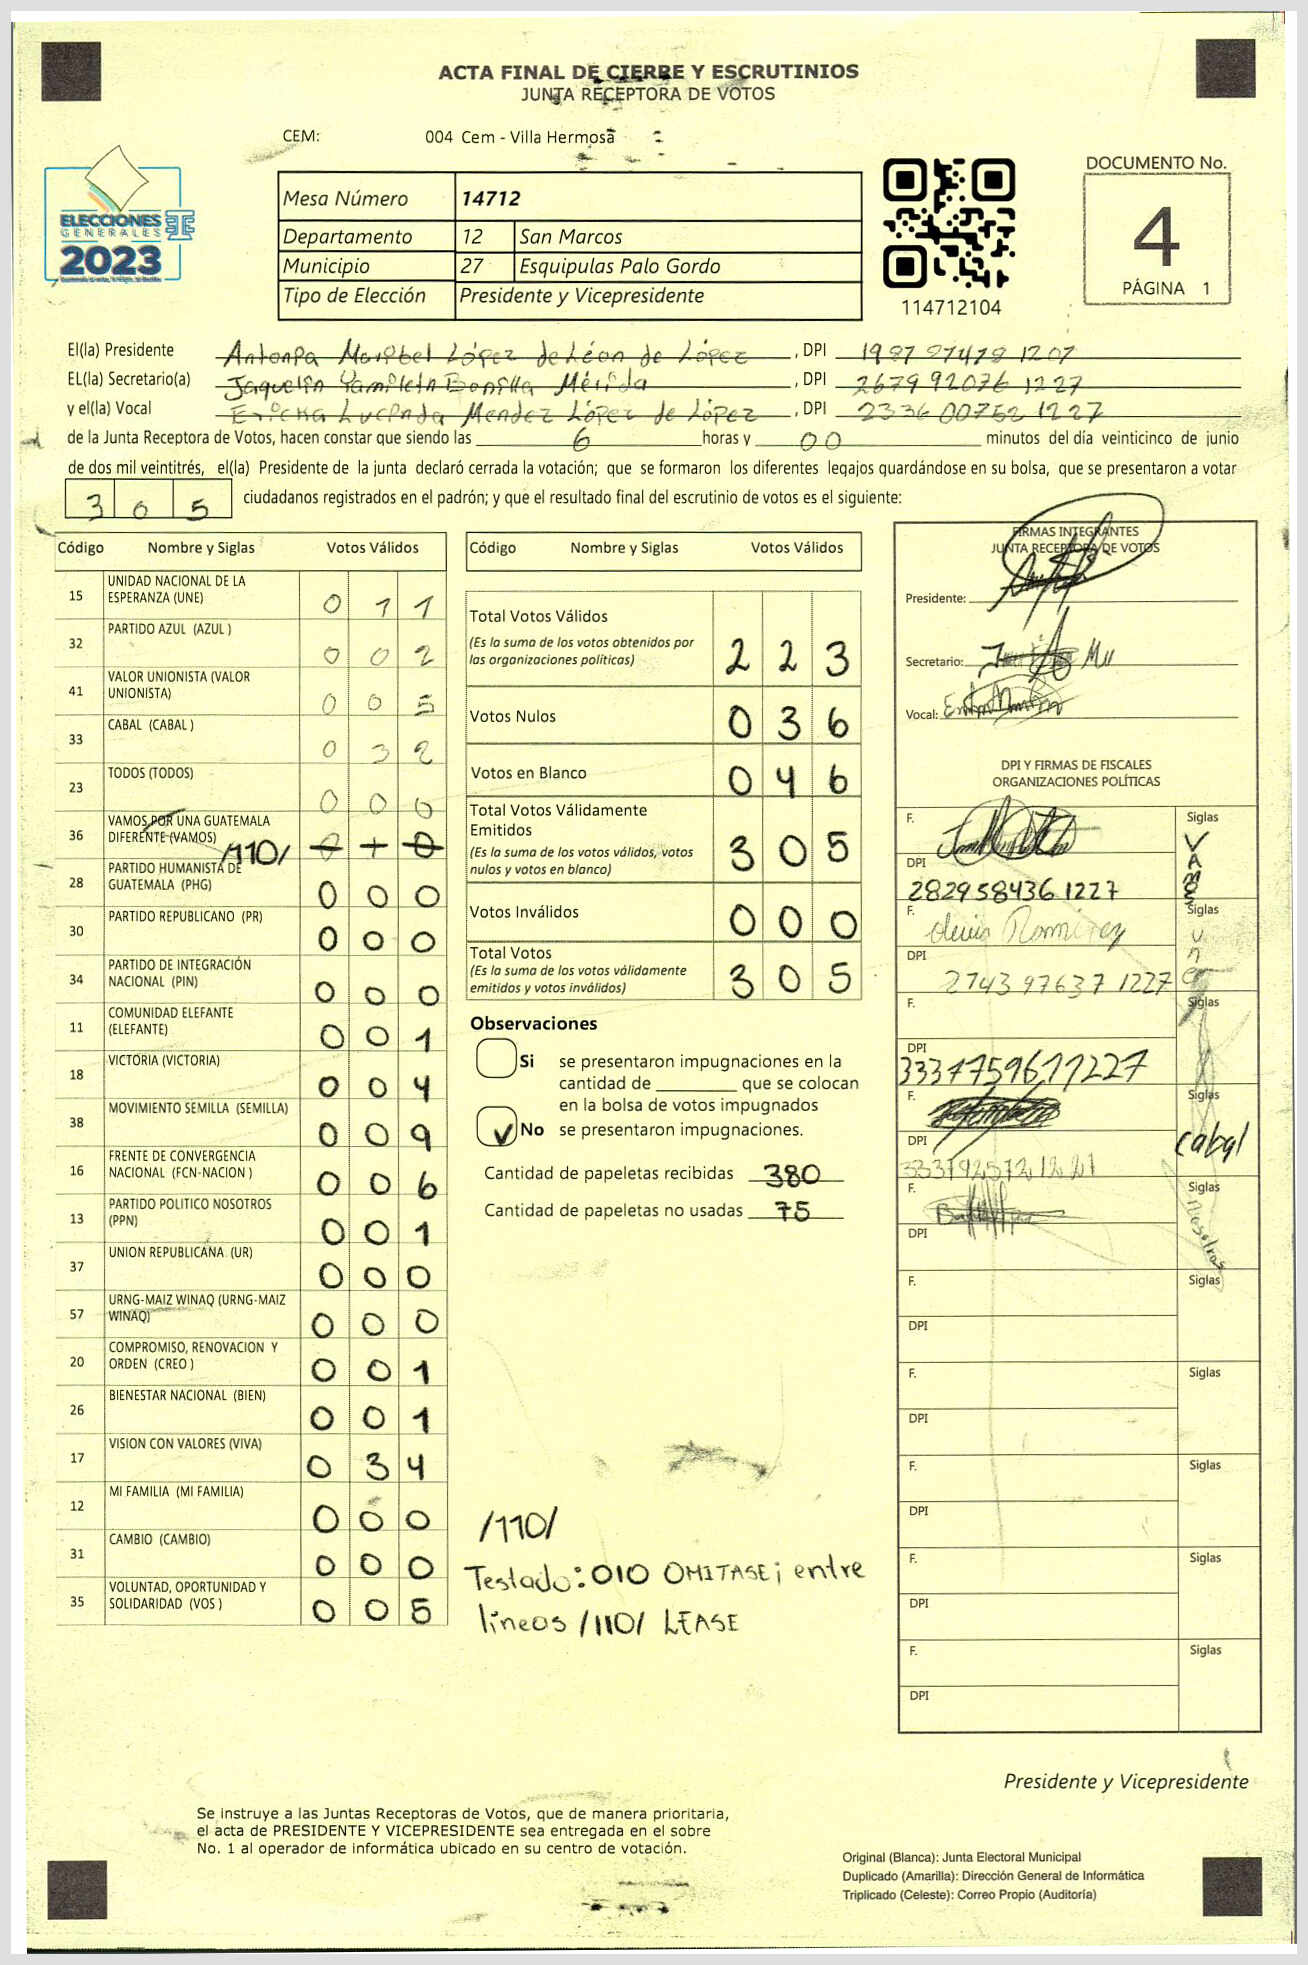 ACTA FINAL DE CIERRE Y ESCRUTINIOS
JUNTA RECEPTORA DE VOTOS
CEM: 004 Cem - Villa Hermosa
ELECCIONES
GENERALES
2023
Mesa Número 14712
Departamento 12 San Marcos
Municipio 27 Esquipulas Palo Gordo
Tipo de Elección Presidente y Vicepresidente
114712104
DOCUMENTO No.
4
PÁGINA 1
El(la) Presidente Maribel López de Léon de López , DPI 1987 97478 1207
EL(la) Secretario(a) Jaquelin Bonilla Mérida , DPI 2679 92076 1227
y el(la) Vocal Ericka Lucinda Mendez López de López , DPI 2336 00752 1227
de la Junta Receptora de Votos, hacen constar que siendo las 6 horas y 00 minutos del día veinticinco de junio
de dos mil veintitrés, el(la) Presidente de la junta declaró cerrada la votación; que se formaron los diferentes legajos guardándose en su bolsa, que se presentaron a votar
3 0 5 ciudadanos registrados en el padrón; y que el resultado final del escrutinio de votos es el siguiente:
Código Nombre y Siglas Votos Válidos
15 UNIDAD NACIONAL DE LA ESPERANZA (UNE) 0 1 1
32 PARTIDO AZUL (AZUL ) 0 0 2
41 VALOR UNIONISTA (VALOR UNIONISTA) 0 0 5
33 CABAL (CABAL ) 0 3 2
23 TODOS (TODOS) 0 0 0
36 VAMOS POR UNA GUATEMALA DIFERENTE (VAMOS) /110/ 0 1 0
28 PARTIDO HUMANISTA DE GUATEMALA (PHG) 0 0 0
30 PARTIDO REPUBLICANO (PR) 0 0 0
34 PARTIDO DE INTEGRACIÓN NACIONAL (PIN) 0 0 0
11 COMUNIDAD ELEFANTE (ELEFANTE) 0 0 1
18 VICTORIA (VICTORIA) 0 0 4
38 MOVIMIENTO SEMILLA (SEMILLA) 0 0 9
16 FRENTE DE CONVERGENCIA NACIONAL (FCN-NACION ) 0 0 6
13 PARTIDO POLITICO NOSOTROS (PPN) 0 0 1
37 UNION REPUBLICANA (UR) 0 0 0
57 URNG-MAIZ WINAQ (URNG-MAIZ WINAQ) 0 0 0
20 COMPROMISO, RENOVACION Y ORDEN (CREO ) 0 0 1
26 BIENESTAR NACIONAL (BIEN) 0 0 1
17 VISION CON VALORES (VIVA) 0 3 4
12 MI FAMILIA (MI FAMILIA) 0 0 0
31 CAMBIO (CAMBIO) 0 0 0
35 VOLUNTAD, OPORTUNIDAD Y SOLIDARIDAD (VOS ) 0 0 5
Código Nombre y Siglas Votos Válidos
Total Votos Válidos
(Es la suma de los votos obtenidos por
las organizaciones políticas) 2 2 3
Votos Nulos 0 3 6
Votos en Blanco 0 4 6
Total Votos Válidamente
Emitidos
(Es la suma de los votos válidos, votos
nulos y votos en blanco) 3 0 5
Votos Inválidos 0 0 0
Total Votos
(Es la suma de los votos válidamente
emitidos y votos inválidos) 3 0 5
Observaciones
Si se presentaron impugnaciones en la
cantidad de ________ que se colocan
en la bolsa de votos impugnados
No se presentaron impugnaciones.
Cantidad de papeletas recibidas 380
Cantidad de papeletas no usadas 75
/110/
Testado: 010 OMITASE; entre
líneas /110/ LEASE
FIRMAS INTEGRANTES
JUNTA RECEPTORA DE VOTOS
Presidente:
Secretario:
Vocal:
DPI Y FIRMAS DE FISCALES
ORGANIZACIONES POLÍTICAS
F. Siglas VAMOS
DPI 2829584361227
F. Ramirez Siglas une
DPI 2743 97637 1227
F. Siglas
DPI 3331759611227
F. Siglas cabal
DPI
F. Siglas Nosotros
DPI
F. Siglas
DPI
F. Siglas
DPI
F. Siglas
DPI
F. Siglas
DPI
F. Siglas
DPI
Presidente y Vicepresidente
Se instruye a las Juntas Receptoras de Votos, que de manera prioritaria,
el acta de PRESIDENTE Y VICEPRESIDENTE sea entregada en el sobre
No. 1 al operador de informática ubicado en su centro de votación.
Original (Blanca): Junta Electoral Municipal
Duplicado (Amarilla): Dirección General de Informática
Triplicado (Celeste): Correo Propio (Auditoría)